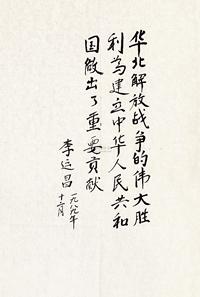 华北解放战争的伟大胜
利为建立中华人民共和
国做出了重要贡献
李运昌
一九八九年
十一月